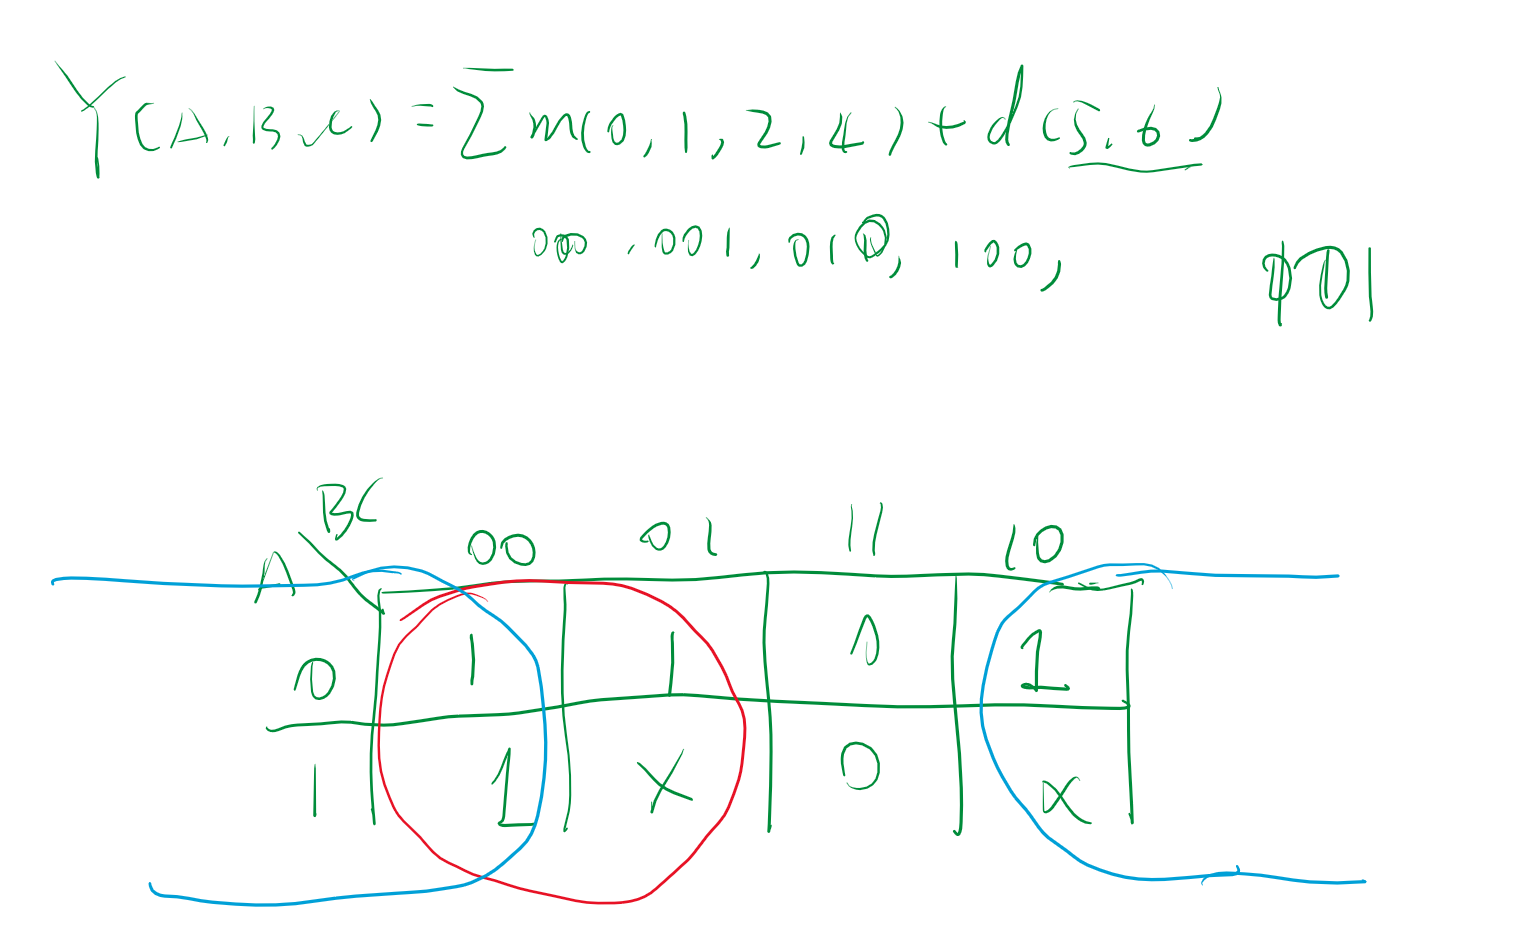 Y(A,B,C) = Σ m(0,1,2,4) + d(5,6)
000,001,010,100,
BC
A 00 01 11 10
0 1 1 0 1
1 1 x 0 x